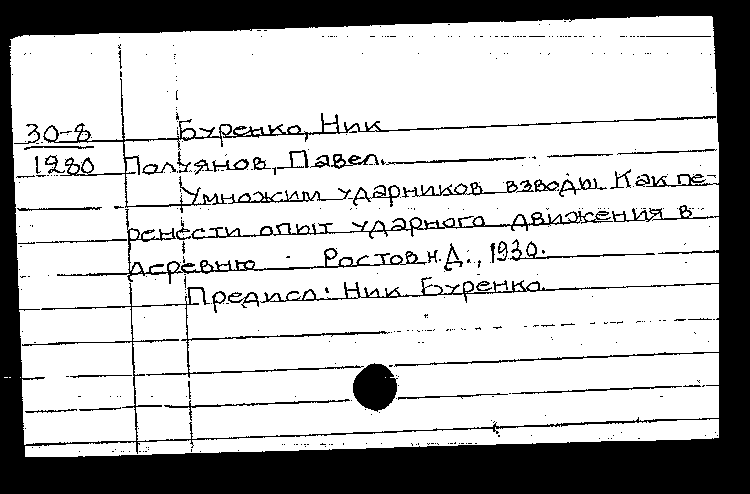 30-8 Буренко, Ник
1280 Полуянов, Павел.
Умножим ударников взводы. Как пе-
ренести опыт ударного движения в
деревню. Ростов н.Д., 1930.
Предисл: Ник Буренко.